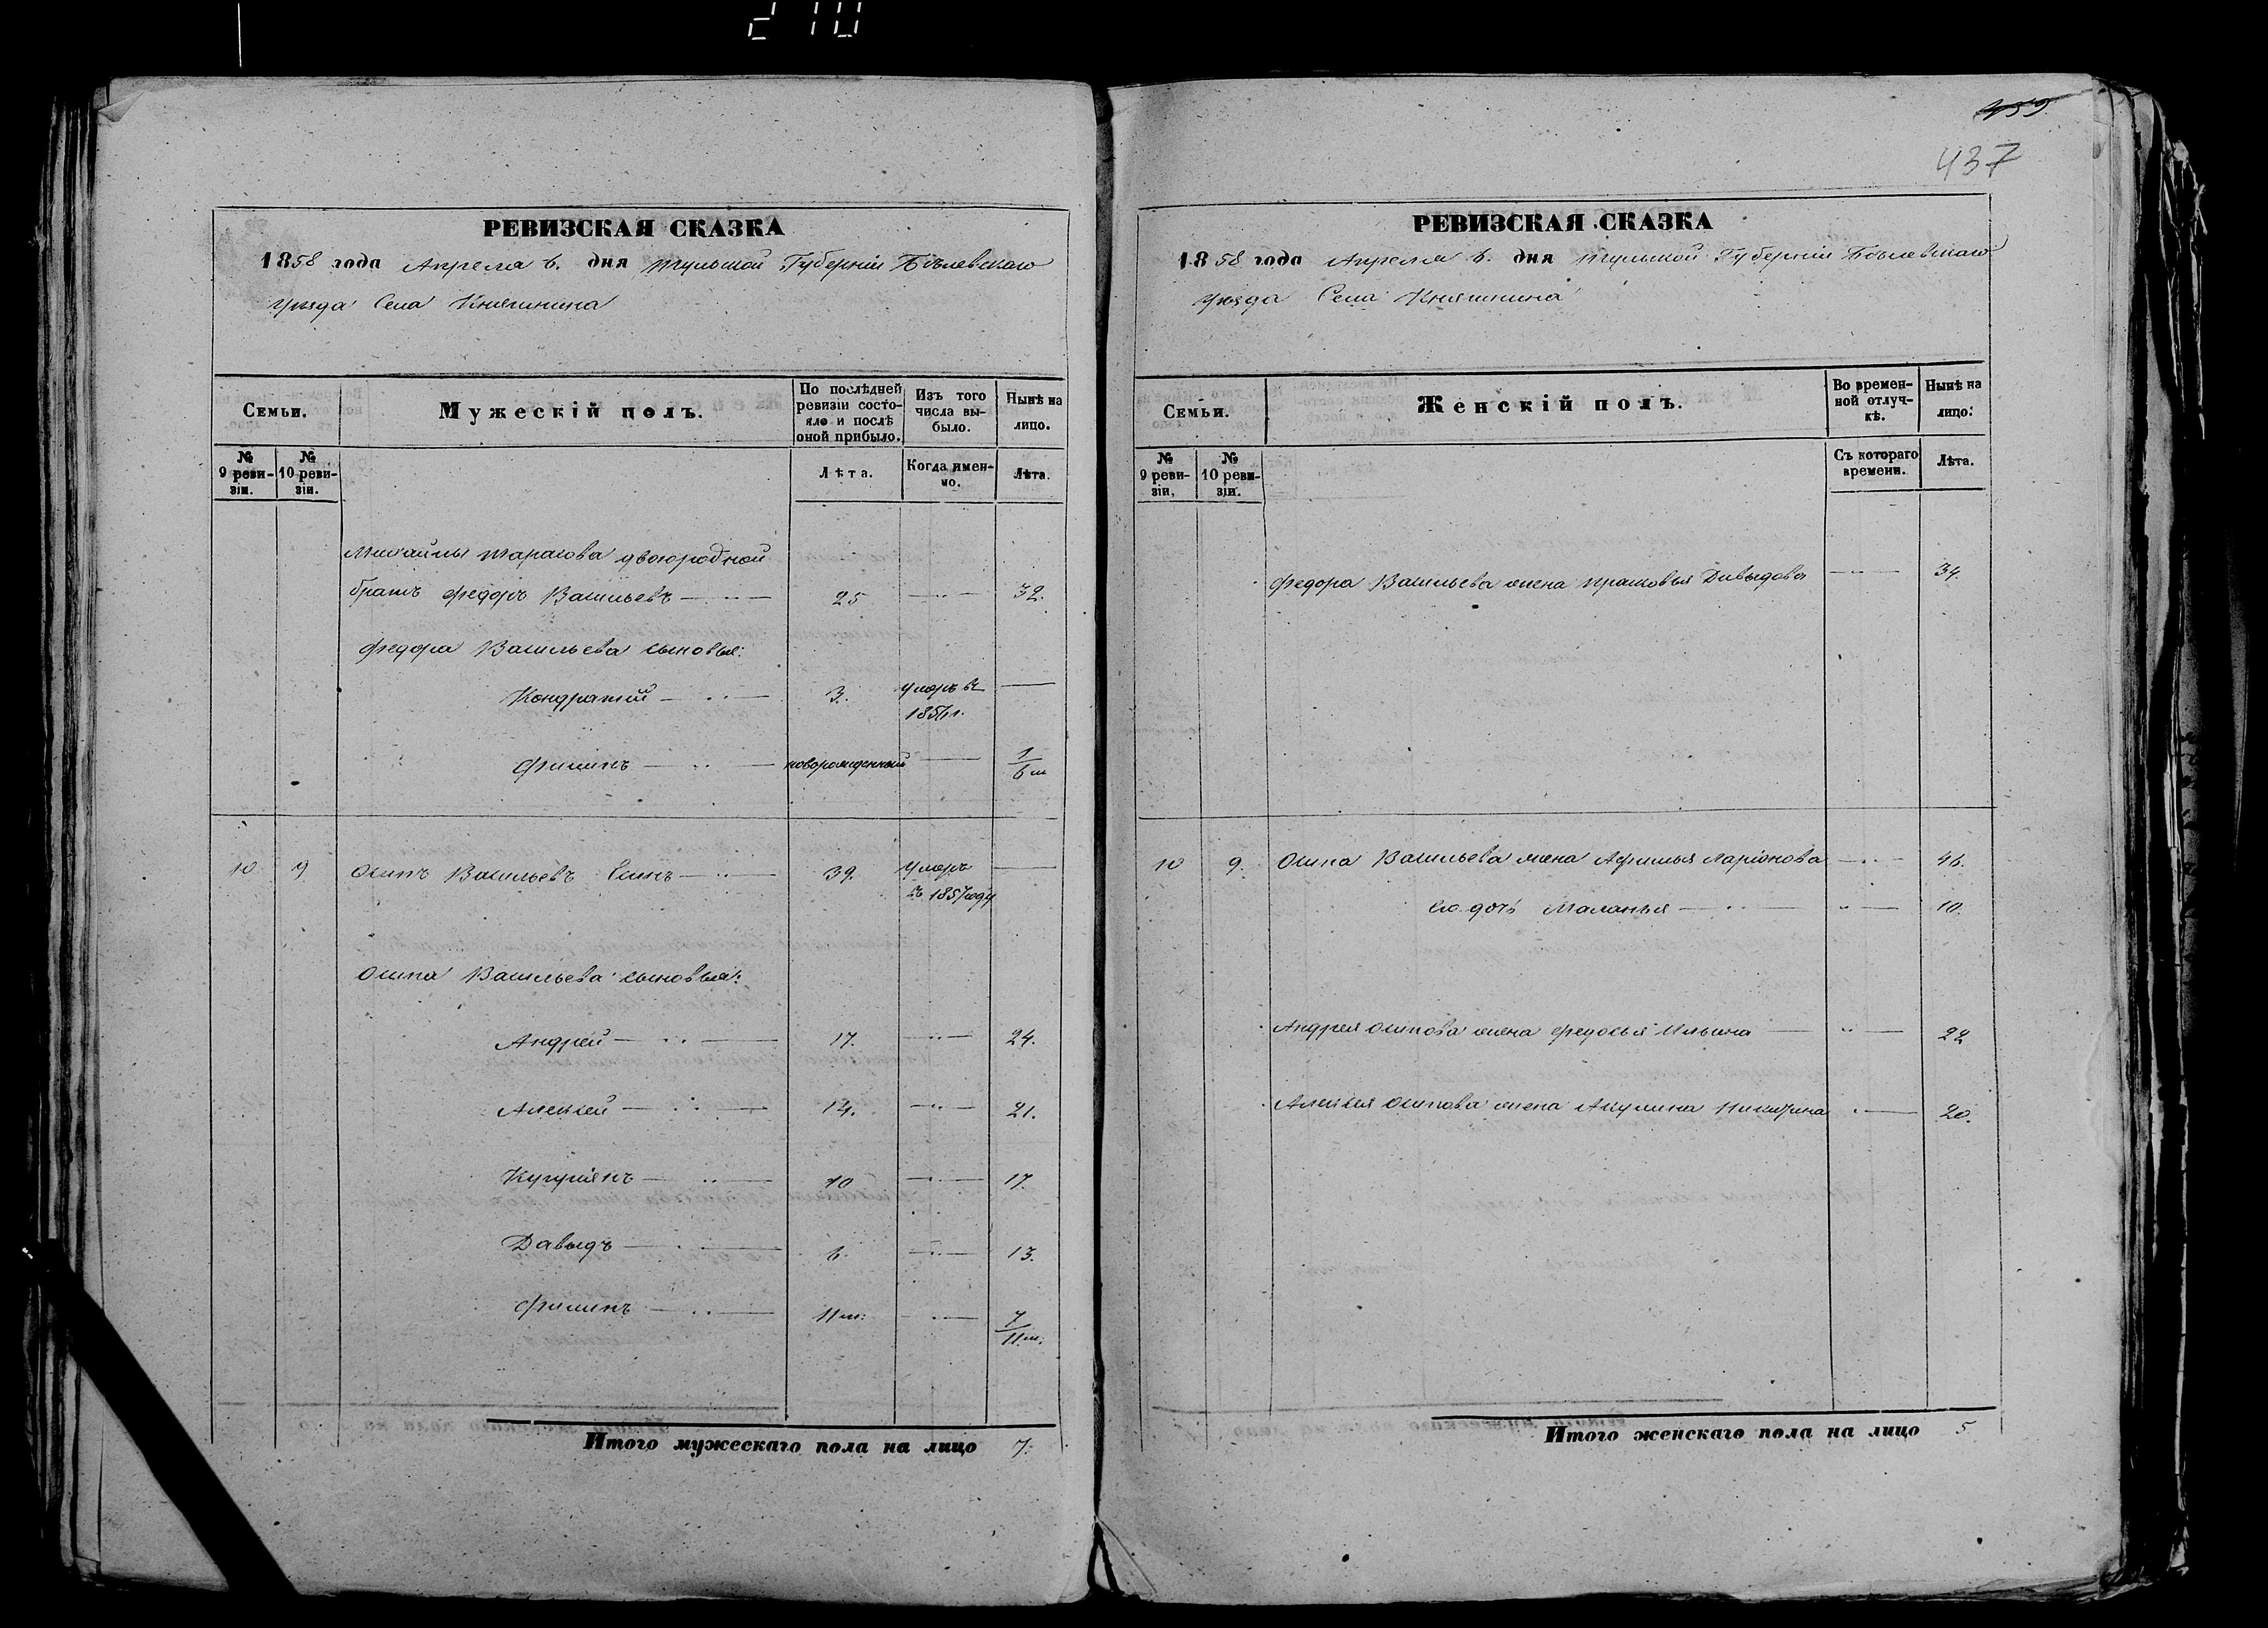 210
РЕВИЗСКАЯ СКАЗКА
1858 года Апреля 6. дня Тульской Губерніи Бѣлевскаго
Уѣзда Села Княгинина
Семьи.
Мужескій полъ.
По послѣдней ревизіи состояло и послѣ оной прибыло.
Изъ того числа выбыло.
Нынѣ на лицо.
№ 9 ревизіи.
№ 10 ревизіи.
Лѣта.
Когда именно.
Лѣта.
Михайлы Тарасова двоюродной
братъ Федоръ Васильевъ 25 32.
Федора Васильева сыновья:
Кондратий 3. умеръ въ
185 г.
Филипъ новорожденный 1/6 м
10 9 Осипъ Васильевъ 39. умеръ
въ 1857 году
Осипа Васильева сыновья:
Андрей 17. 24.
Алексей 14. 21.
Купріянъ 10 17.
Давыдъ 6. 13.
Филипъ 11 м: 7/11 м:
Итого мужескаго пола на лицо 7.
459.
437
РЕВИЗСКАЯ СКАЗКА
1858 года Апреля 6. дня Тульской Губерніи Бѣлевскаго
Уѣзда Села Княгинина
Семьи.
Женскій полъ.
Во временной отлучкѣ.
Нынѣ на лицо.
№ 9 ревизіи.
№ 10 ревизіи.
Съ котораго времени.
Лѣта.
Федора Васильева жена Прасковья Давыдова 34.
10 9. Осипа Васильева жена Афимья Ларіонова 46.
Его дочь Маланья 10.
Андрея Осипова жена Федосья Ильина 22
Алексея Осипова жена Акулина Никитина 20.
Итого женскаго пола на лицо 5